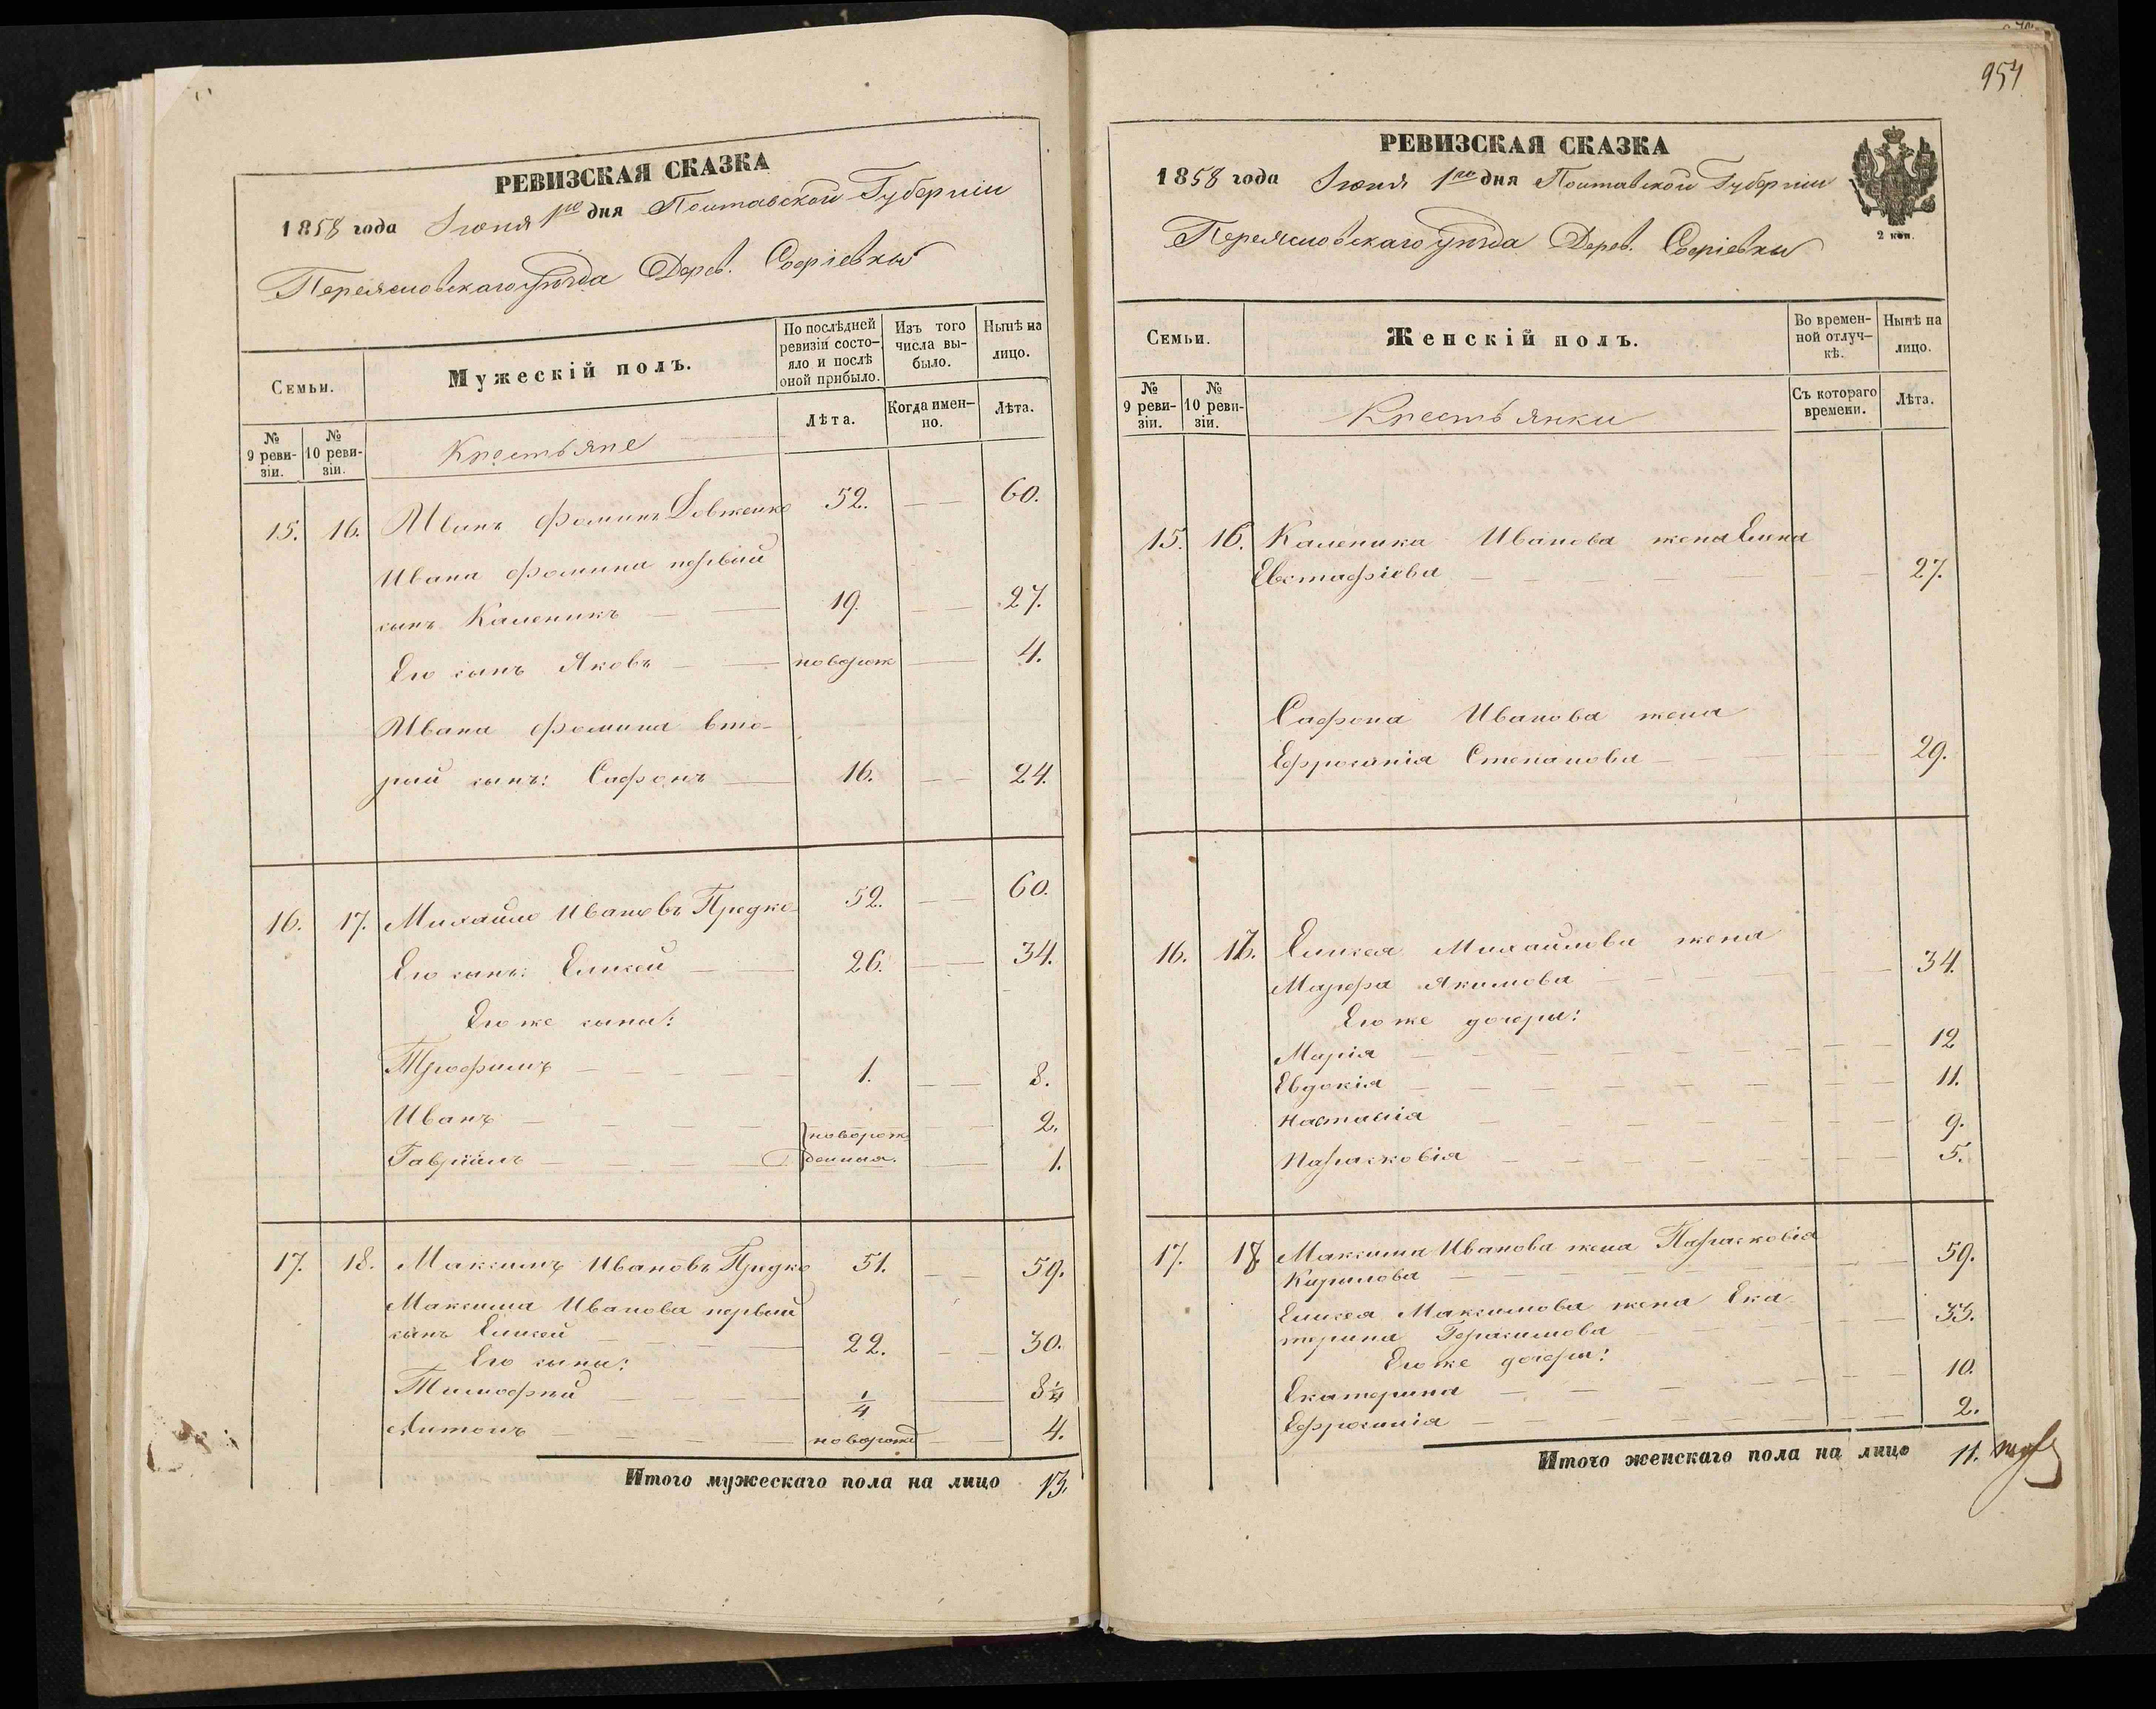 РЕВИЗСКАЯ СКАЗКА
1858 года Іюня 1го дня Полтавской Губерніи
Переяславскаго уѣзда Дерев. Софіевки
Семьи.
Мужескій полъ.
По послѣдней ревизіи состо-
яло и послѣ оной прибыло.
Изъ того числа вы-
было.
Нынѣ на лицо.
№ 9 реви-
зіи.
№ 10 реви-
зіи.
Крестьяне
Лѣта.
Когда имен-
но.
Лѣта.
15. 16. Иванъ Фоминъ Довженко 52. 60.
Ивана Фомина первый
сынъ Каленикъ 19. 27.
Его сынъ Яковъ новорож 4.
Ивана Фомина вто-
рый сынъ: Сафонъ 16. 24.
16. 17. Михайло Ивановъ Предко 52. 60.
Его сынъ: Елисей 26. 34.
Его же сыны:
Трофимъ 1. 8.
Иванъ новорож- 2.
Гавріилъ денныя. 1.
17. 18. Максимъ Ивановъ Предко 51. 59.
Максима Иванова первый
сынъ Елисей 22. 30.
Его сыны:
Тимофей 1/4 8 1/4
Антонъ новорожд 4.
Итого мужескаго пола на лицо 13.
954
РЕВИЗСКАЯ СКАЗКА
1858 года Іюня 1го дня Полтавской Губерніи
2 коп.
Переяславскаго уѣзда Дерев. Софіевки
Семьи.
Женскій полъ.
Во времен-
ной отлуч-
кѣ.
Нынѣ на лицо.
№ 9 реви-
зіи.
№ 10 реви-
зіи.
Крестьянки
Съ котораго времени.
Лѣта.
15. 16. Каленика Иванова жена Елена
Евстафіева 27.
Сафона Иванова жена
Ефросинія Степанова 29.
16. 17. Елисея Михайлова жена
Марфа Якимова 34.
Его же дочери:
Марія 12
Евдокія 11.
Настасія 9.
Парасковія 5.
17. 18 Максима Иванова жена Парасковія
Кирилова 59.
Елисея Максимова жена Ека
терина Герасимова 33.
Его же дочери:
Екатерина 10.
Ефросинія 2.
Итого женскаго пола на лицо 11.